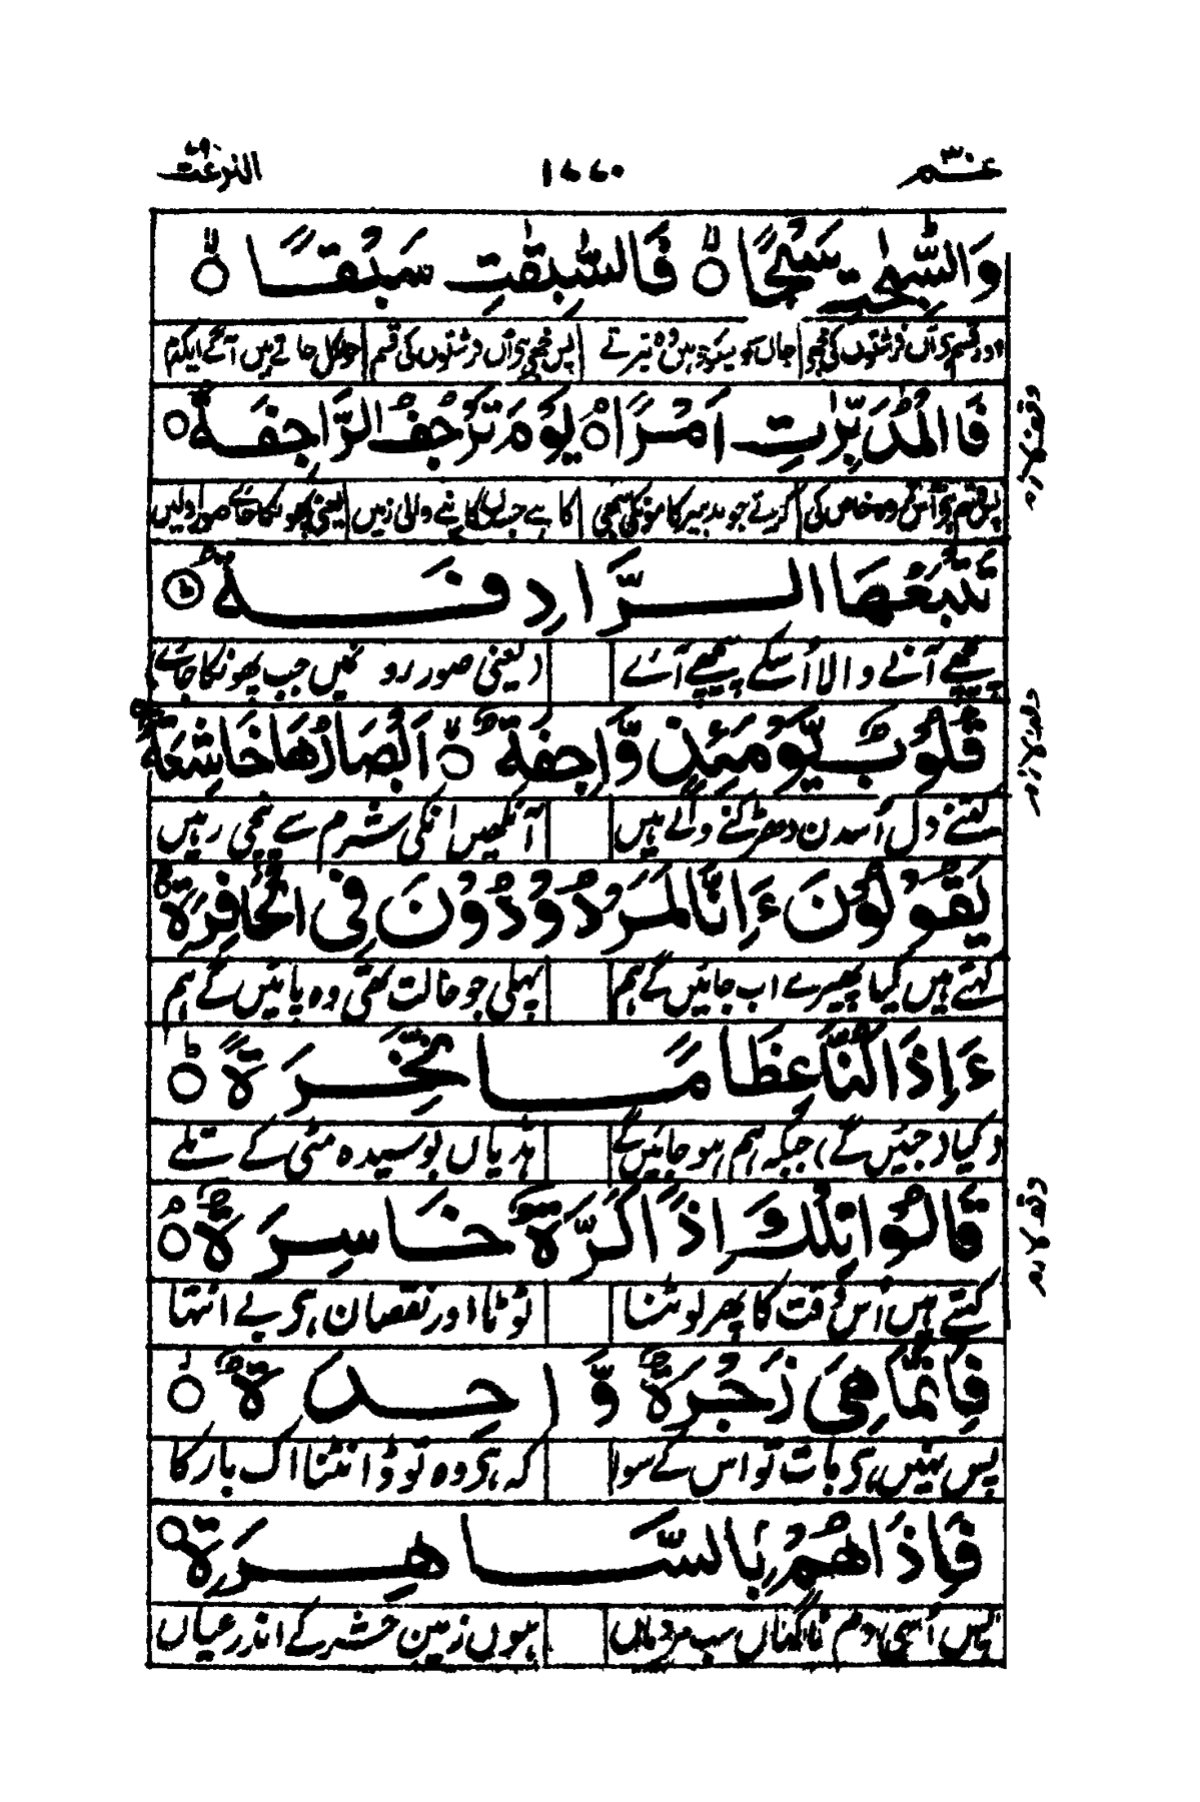 عمّ ٣٠ ١٧٧٠ النزعت ٧٩
وَالسّٰبِحٰتِ سَبْحًا ۙ فَالسّٰبِقٰتِ سَبْقًا ۙ
اور قسم ہی اُن فرشتوں کی بھی تیرتے پس بھی ہی اُن فرشتوں کی قسم جو نکل جاتے ہیں آگے ایکدم
فَالْمُدَبِّرٰتِ اَمْرًا ۘ يَوْمَ تَرْجُفُ الرَّاجِفَةُ ۙ
پس قسم ہی اُس گروہ خاص کی کرتے جو تدبیر کا کانپنے والی زمیں
تَتْبَعُهَا الرَّادِفَةُ ۭ
پیچھے آنے والا اُسکے پیچھے آئے (یعنی صور رو میں جب پھونکا جائے)
قُلُوْبٌ يَّوْمَئِذٍ وَّاجِفَةٌ ۙ اَبْصَارُهَا خَاشِعَةٌ ۘ
کتنے دل اُسدن دھڑکنے والے ہیں آنکھیں انکی شرم سے نیچی رہیں
يَقُوْلُوْنَ ءَاِنَّا لَمَرْدُوْدُوْنَ فِى الْحَافِرَةِ ۭ
کہتے ہیں کیا پھیرے اب جائیں گے ہم پہلی جو حالت تھی وہ پائیں گے ہم
ءَاِذَا كُنَّا عِظَامًا نَّخِرَةً ۭ
(کیا جئیں گے) جبکہ ہم ہو جائیں گے ہڈیاں بوسیدہ مٹی کے تلے
قَالُوْا تِلْكَ اِذًا كَرَّةٌ خَاسِرَةٌ ۘ
کہتے ہیں اُس وقت کا پھر لوٹنا ٹوٹا اور نقصان ہی بے انتہا
فَاِنَّمَا هِىَ زَجْرَةٌ وَّاحِدَةٌ ۙ
پس نہیں ہی بات تو اس کے سوا کہ ہی وہ تو ڈانٹنا اک بار کا
فَاِذَا هُمْ بِالسَّاهِرَةِ ۭ
پس اُسی دم ناگہاں سب مردماں ہوں زمین حشر کے اندر عیاں
وقف لازم
وقف لازم
وقف لازم